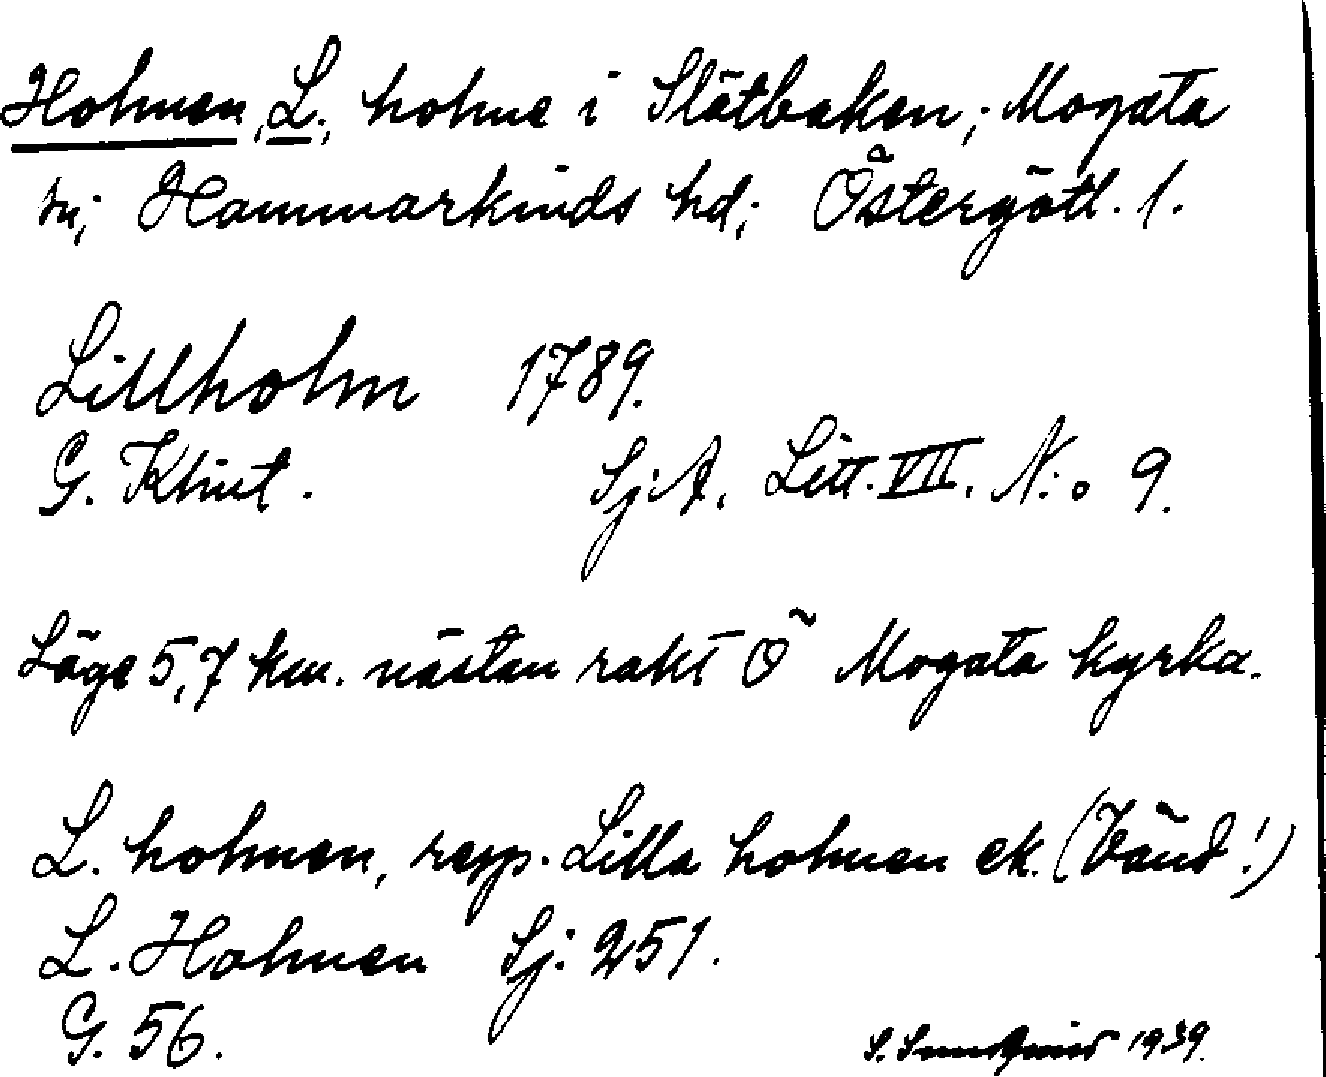 Holmen, L., holme i Slätbaken; Mogata
sn; Hammarkinds hd; Östergötl. l.
Lillholm 1789.
G. Klint. Sj:A. Litt. VII. N:o 9.
Läge 5,7 km. nästan rakt Ö Mogata kyrka.
L. holmen, resp. Lilla holmen ek. (Vänd!)
L. Holmen Sj: 251.
G. 56.
S. Sundqvist 1939.